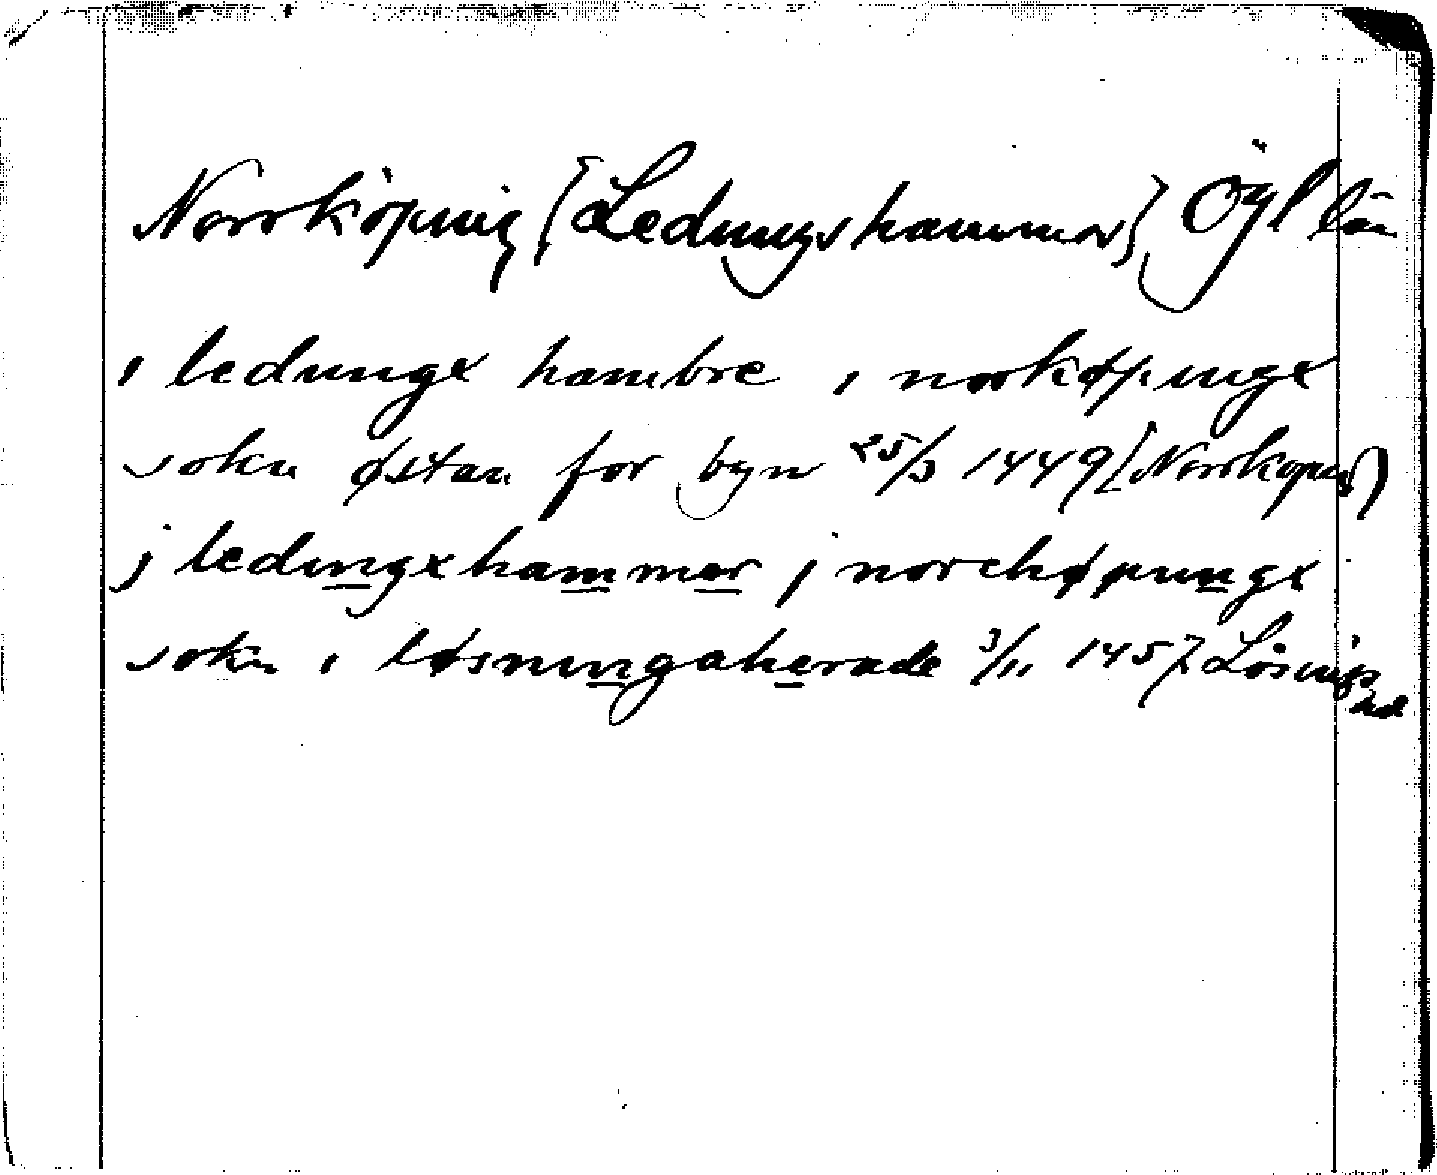 Norrköping {Ledungshammar} Ögl län
i ledungx hambre i norkøpungx
sokn østan for byn 25/3 1449 (Norrköping)
j ledungxhammar j norchøpungx
sokn i løsningaherade 3/11 1457 Lösings
hd